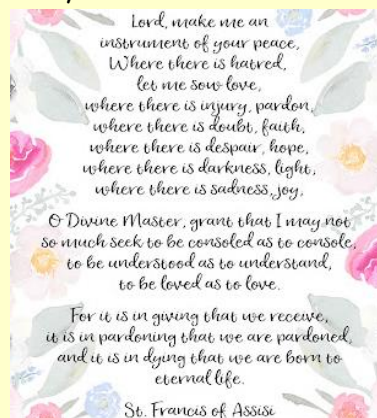 Lord, make me an
instrument of your peace,
Where there is hatred,
let me sow love,
where there is injury, pardon,
where there is doubt, faith,
where there is despair, hope,
where there is darkness, light,
where there is sadness, joy,
O Divine Master, grant that I may not
so much seek to be consoled as to console,
to be understood as to understand,
to be loved as to love.
For it is in giving that we receive,
it is in pardoning that we are pardoned,
and it is in dying that we are born to
eternal life.
St. Francis of Assisi